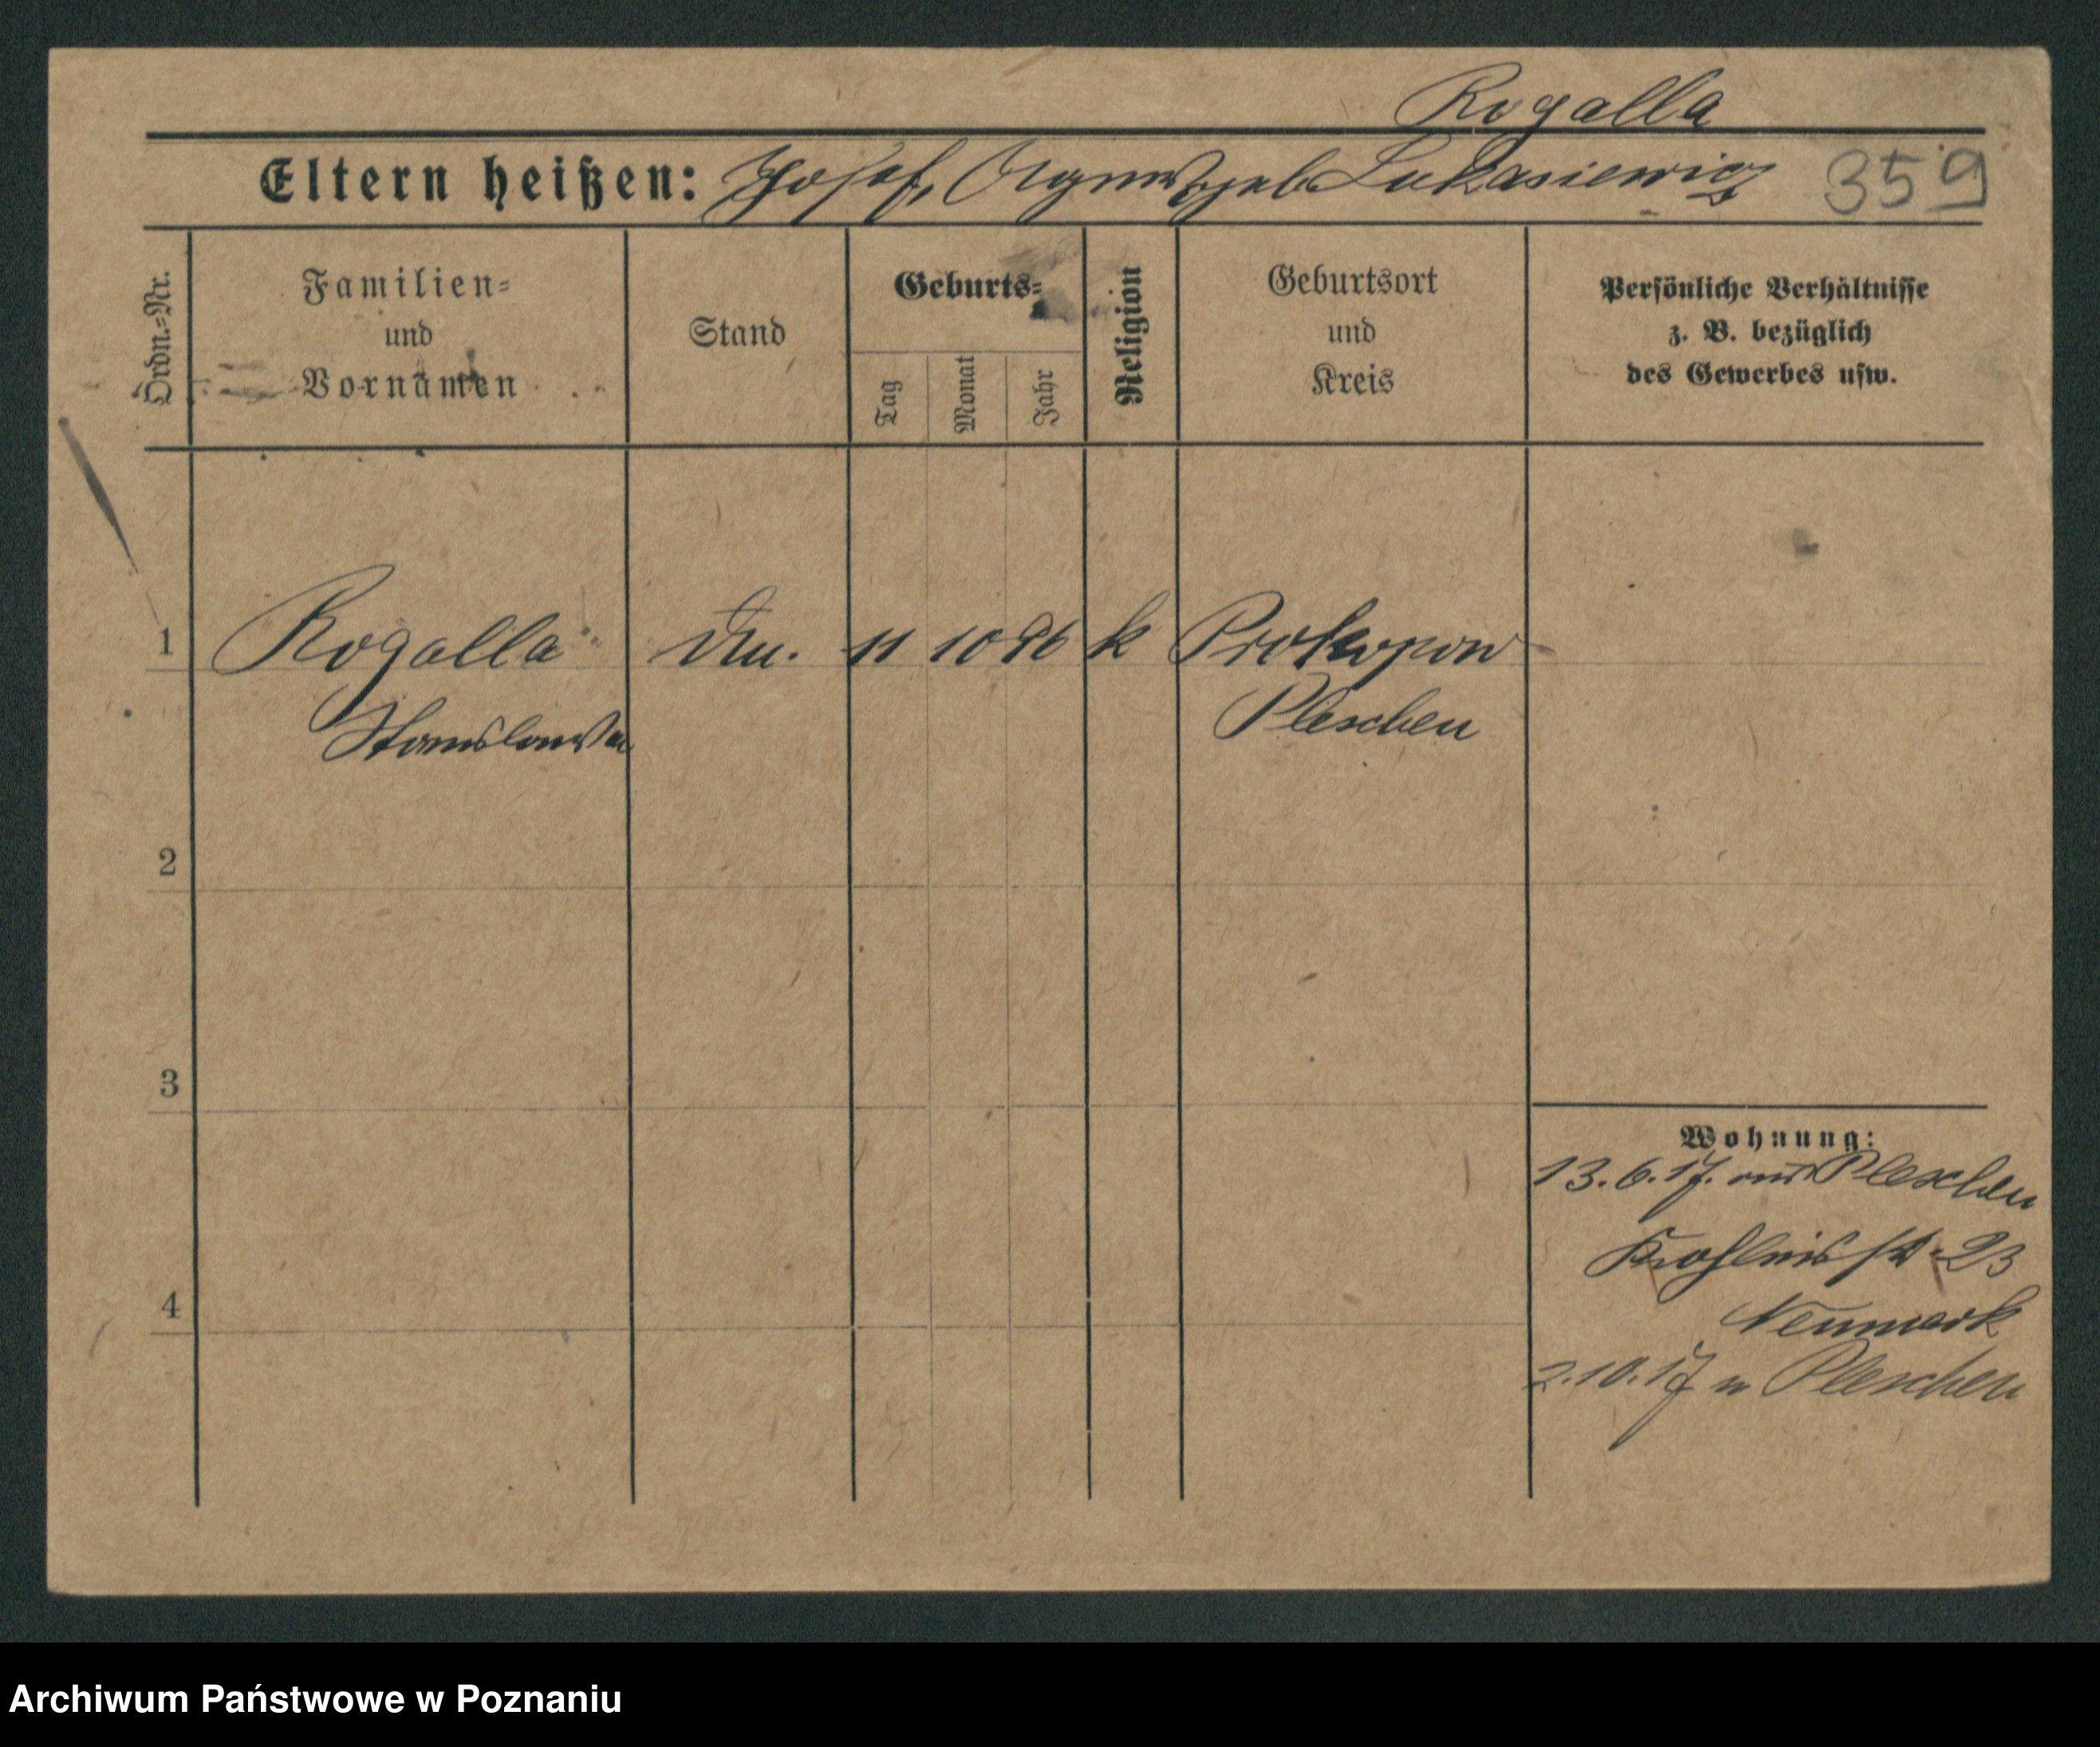 Rogalla
Eltern heißen: Josef, Agnes geb Lukasiewicz 359
Ordn.=Nr.
Familien=
und
Vornamen
Stand
Geburts=
Tag
Monat
Jahr
Religion
Geburtsort
und
Kreis
Persönliche Verhältnisse
z. B. bezüglich
des Gewerbes usw.
1 Rogalla 11 10 96 k Prokopow
Stanislawa Pleschen
2
3
Wohnung:
13.6.17. aus Pleschen
23
4
Neumark
2.10.17 n Pleschen
Archiwum Państwowe w Poznaniu